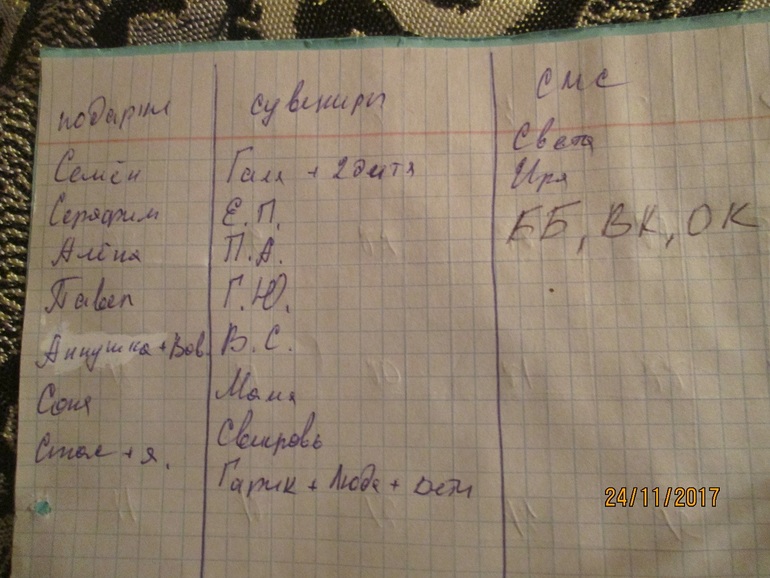 подарки
Семён
Серафим
Алёна
Павел
Аннушка + Вов.
Соня
Стас + я.
сувениры
Галя + 2 дитя
Е.П.
П.А.
Г.Ю.
В.С.
Мама
Свекровь
Гарик + Люда + дети
смс
Света
Ира
ББ, ВК, ОК
24/11/2017